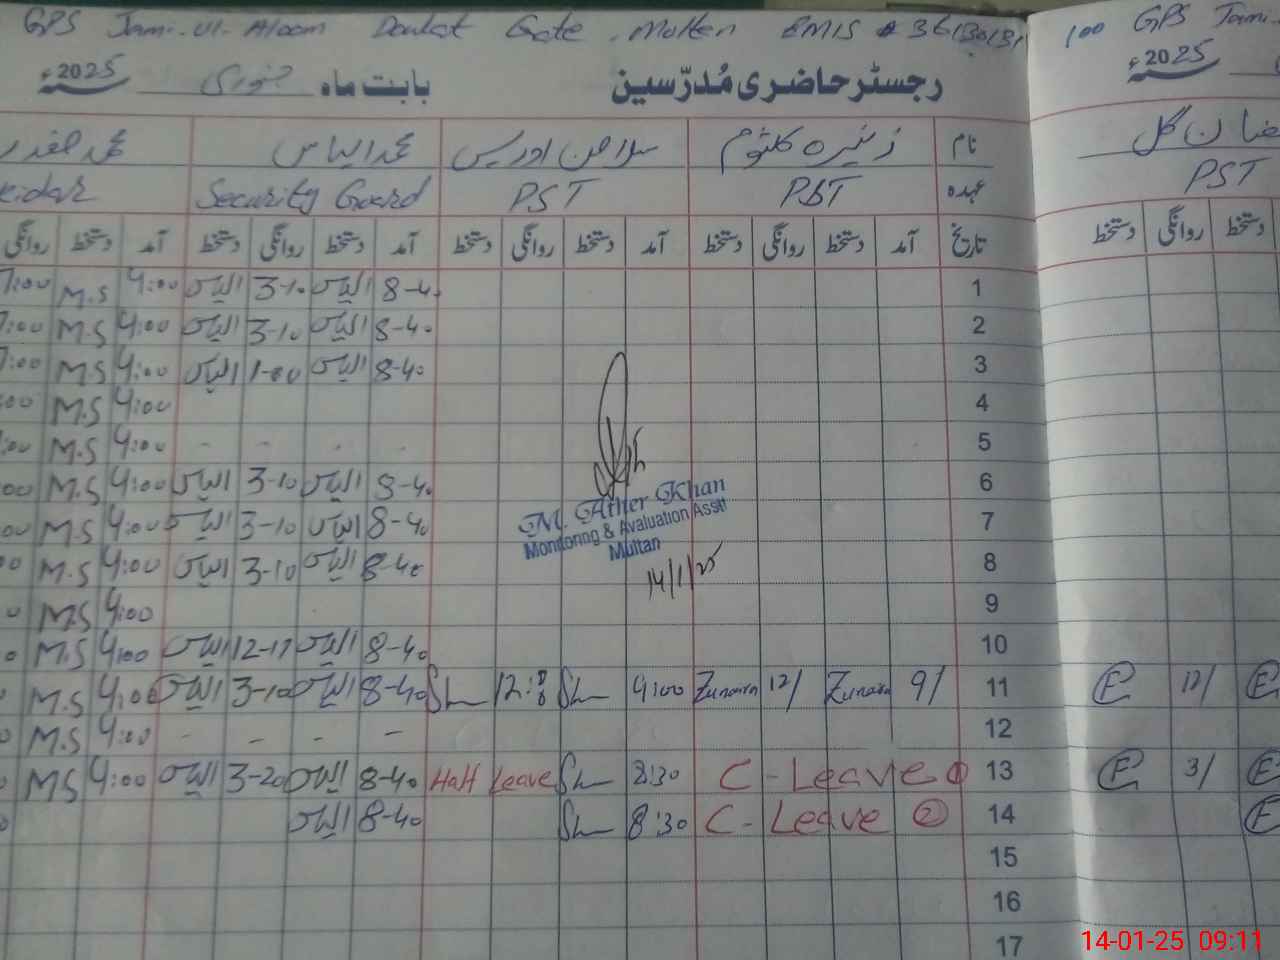 GPS Jami-ul-Aloom Doulat Gate, Multan EMIS # 36130131 100 GPS Jami-
رجسٹر حاضری مُدرّسین بابت ماہ جنوری 2025ء 2025ء
نام زنیرہ کلثوم سلامن ادریس محمد الیاس محمد صفدر
عہدہ PST PST Security Guard PST
تاریخ آمد دستخط روانگی دستخط آمد دستخط روانگی دستخط آمد دستخط روانگی دستخط آمد دستخط روانگی دستخط روانگی دستخط
1 8-40 الیاس 3-10 الیاس 4:00 M.S 7:00
2 8-40 الیاس 3-10 الیاس 4:00 M.S 7:00
3 8-40 الیاس 1-00 الیاس 4:00 M.S 7:00
4 4:00 M.S
5 - - - - 4:00 M.S
6 8-40 الیاس 3-10 الیاس 4:00 M.S
7 8-40 الیاس 3-10 الیاس 4:00 M.S
M. Ather Khan
Monitoring & Avaluation Asstt
Multan
14/1/25
8 8-40 الیاس 3-10 الیاس 4:00 M.S
9 4:00 M.S
10 8-40 الیاس 12-17 الیاس 4:00 M.S
11 9/ Zunaira 12/ Zunaira 4:00 Sh 12:8 Sh 8-40 الیاس 3-10 الیاس 4:00 M.S E 12/ E
12 - - - - 4:00 M.S
13 C-Leave 1 8:30 Sh Half Leave 8-40 الیاس 3-20 الیاس 4:00 MS E 3/ E
14 C-Leave 2 8:30 Sh 8-40 الیاس E
15
16
17
14-01-25 09:11